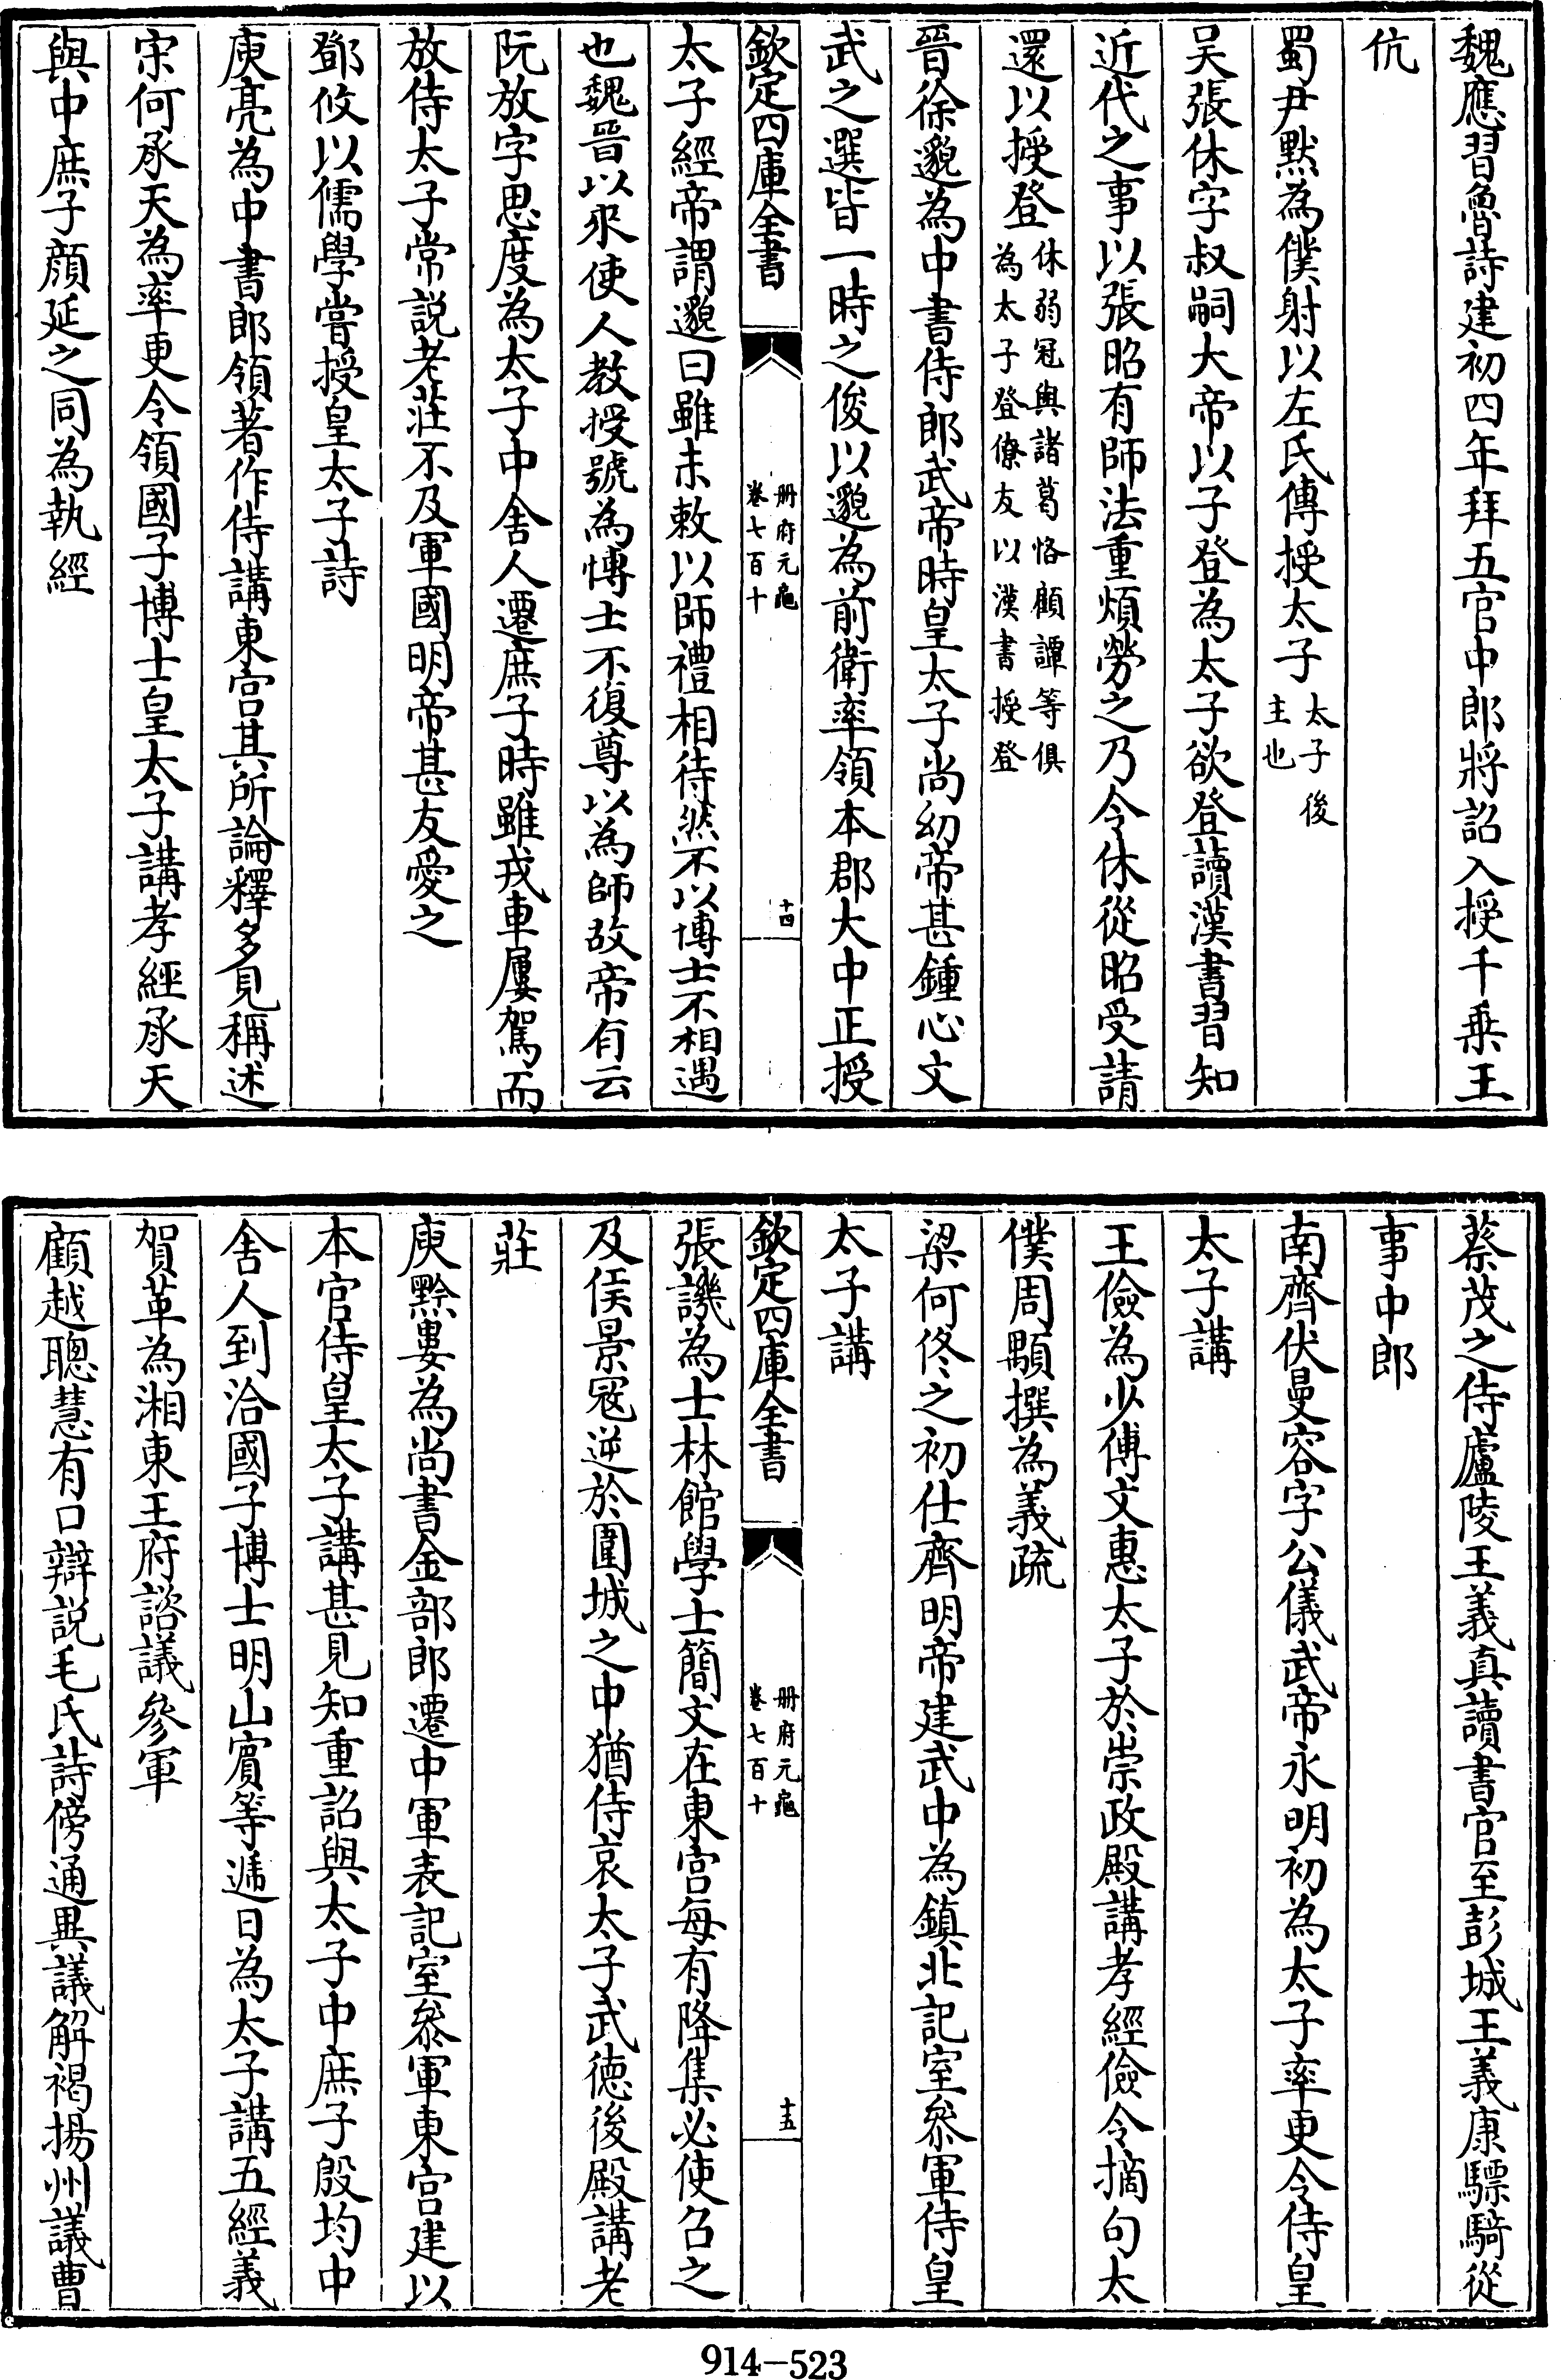 魏應習魯詩建初四年拜五官中郎將詔入授千乗王
伉
蜀尹黙為僕射以左氏傳授太子太子後主也
吴張休字叔嗣大帝以子登為太子欲登讀漢書習知
近代之事以張昭有師法重煩勞之乃令休從昭受請
還以授登休弱冠與諸葛恪顧譚等俱為太子登僚友以漢書授登
晉徐邈為中書侍郎武帝時皇太子尚幼帝甚鍾心文
武之選皆一時之俊以邈為前衛率領本郡大中正授
欽定四庫全書
冊府元龜
卷七百十
十四
太子經帝謂邈曰雖未敕以師禮相待然不以博士不相遇
也魏晉以來使人教授號為博士不復尊以為師故帝有云
阮放字思度為太子中舍人遷庶子時雖戎車屢駕而
放侍太子常説老莊不及軍國明帝甚友愛之
鄧攸以儒學嘗授皇太子詩
庾亮為中書郎領著作侍講東宫其所論釋多見稱述
宋何承天為率更令領國子博士皇太子講孝經承天
與中庶子顔延之同為執經
蔡茂之侍廬陵王義真讀書官至彭城王義康驃騎從
事中郎
南齊伏曼容字公儀武帝永明初為太子率更令侍皇
太子講
王儉為少傅文惠太子於崇政殿講孝經儉令摘句太
僕周顒撰為義疏
梁何佟之初仕齊明帝建武中為鎮北記室參軍侍皇
太子講
欽定四庫全書
冊府元龜
卷七百十
十五
張譏為士林館學士簡文在東宫每有降集必使召之
及侯景寇逆於圍城之中猶侍哀太子武德後殿講老
莊
庾黔婁為尚書金部郎遷中軍表記室參軍東宫建以
本官侍皇太子講甚見知重詔與太子中庶子殷均中
舍人到洽國子博士明山賓等遞日為太子講五經義
賀革為湘東王府諮議參軍
顧越聰慧有口辯説毛氏詩傍通異議解褐揚州議曹
914-523